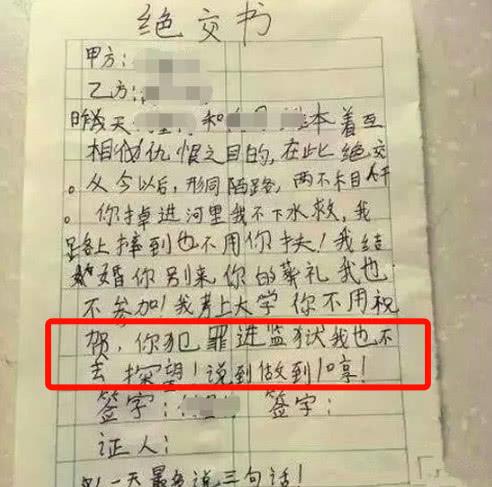 绝交书
甲方:
乙方:
昨天 和 本着互
相仇恨之目的,在此绝交
。从今以后,形同陌路,两不相干
。你掉进河里我不下水救,我
路上摔到也不用你扶!我结
婚你别来你的葬礼我也
不参加!我考上大学你不用祝
贺,你犯罪进监狱我也不
去探望!说到做到!哼!
签字: 签字:
证人:
一天最多说三句话!